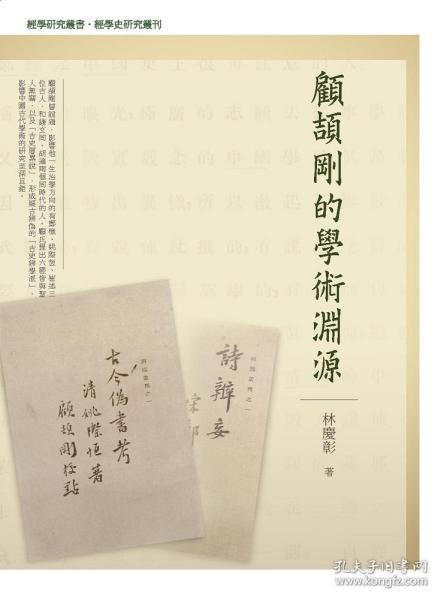 經學研究叢書・經學史研究叢刊
顧頡剛的學術淵源
林慶彰 著
顧頡剛曾說過，影響他一生治學方向的有鄭樵、姚際恆、崔述三
位古人，和錢玄同、胡適兩個同時代的人。顧氏提出六經皆與聖
人無關，以及「古史層累說」，形成疑古辨偽的「古史辨學派」，
影響中國古代學術的研究至深且鉅。
辨偽叢刊之一
詩辨妄
宋 鄭
辨偽叢刊之一
古今偽書考
清姚際恒著
顧頡剛校點
孔夫子旧书网